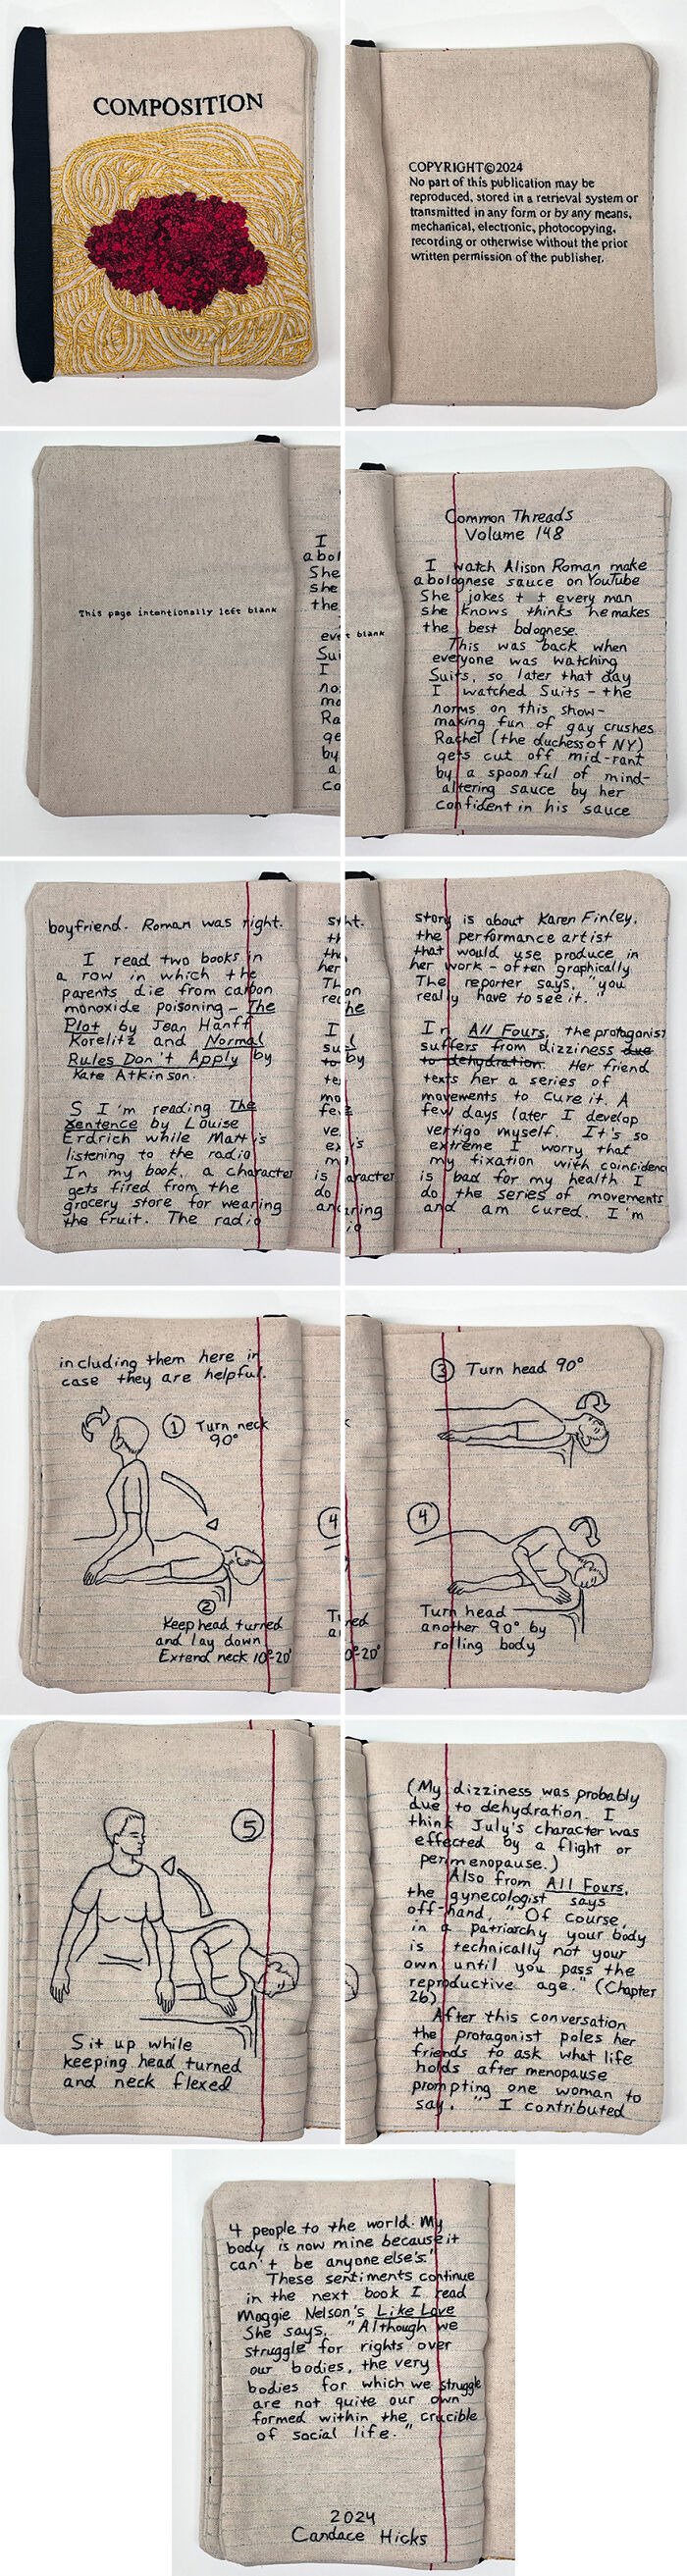 COMPOSITION
COPYRIGHT©2024
No part of this publication may be
reproduced, stored in a retrieval system or
transmitted in any form or by any means,
mechanical, electronic, photocopying,
recording or otherwise without the prior
written permission of the publisher.
This page intentionally left blank
Common Threads
Volume 148
I watch Alison Roman make
a bolognese sauce on YouTube
She jokes t t every man
she knows thinks he makes
the best bolognese.
This was back when
everyone was watching
Suits, so later that day
I watched Suits - the
norms on this show-
making fun of gay crushes
Rachel (the duchess of NY)
gets cut off mid-rant
by a spoon ful of mind-
altering sauce by her
confident in his sauce
boyfriend. Roman was right.
I read two books in
a row in which the
parents die from carbon
monoxide poisoning - The
Plot by Jean Hanff
Korelitz and Normal
Rules Don't Apply by
Kate Atkinson.
S I'm reading The
Sentence by Louise
Erdrich while Matt is
listening to the radio
In my book, a character
gets fired from the
grocery store for wearing
the fruit. The radio
story is about Karen Finley,
the performance artist
that would use produce in
her work - often graphically
The reporter says, "you
really have to see it."
In All Fours, the protagonist
suffers from dizziness due
to dehydration. Her friend
texts her a series of
movements to cure it. A
few days later I develop
vertigo myself. It's so
extreme I worry that
my fixation with coincidenc
is bad for my health I
do the series of movements
and am cured. I'm
including them here in
case they are helpful.
1 Turn neck
90°
2
Keep head turned
and lay down
Extend neck 10°-20°
3 Turn head 90°
4
Turn head
another 90° by
rolling body
5
Sit up while
keeping head turned
and neck flexed
(My dizziness was probably
due to dehydration. I
think July's character was
effected by a flight or
perimenopause.)
Also from All Fours,
the gynecologist says
off-hand, "Of course,
in a patriarchy your body
is technically not your
own until you pass the
reproductive age." (Chapter
26)
After this conversation
the protagonist poles her
friends to ask what life
holds after menopause
prompting one woman to
say, "I contributed
4 people to the world. My
body is now mine because it
can't be anyone else's."
These sentiments continue
in the next book I read
Maggie Nelson's Like Love
She says, "Although we
struggle for rights over
our bodies, the very
bodies for which we struggle
are not quite our own
formed within the crucible
of social life."
2024
Candace Hicks